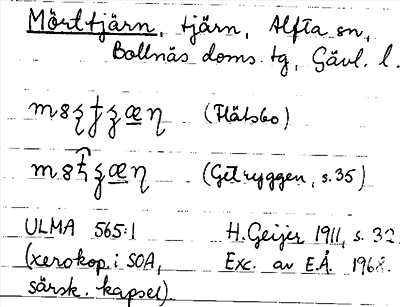 Mörttjärn, tjärn, Alfta sn,
Bollnäs doms. tg, Gävl. l.
(Flätsbo)
(Getryggen, s.35)
ULMA 565:1 H. Geijer 1911, s. 32
(xerokop. i SOA, Exc. av E.Å. 1968.
särsk. kapsel).